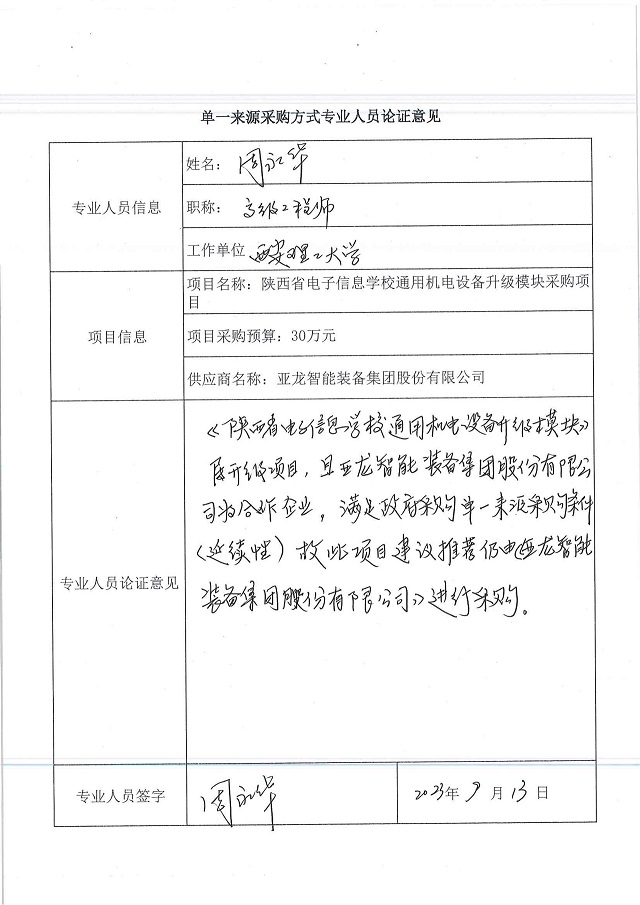 单一来源采购方式专业人员论证意见
专业人员信息
姓名：周永华
职称：高级工程师
工作单位 西安理工大学
项目信息
项目名称：陕西省电子信息学校通用机电设备升级模块采购项
目
项目采购预算：30万元
供应商名称：亚龙智能装备集团股份有限公司
专业人员论证意见
《陕西省电子信息学校通用机电设备升级模块》
属升级项目，且亚龙智能装备集团股份有限公
司为合作企业，满足政府采购单一来源采购条件
（延续性）故此项目建议推荐仍由《亚龙智能
装备集团股份有限公司》进行采购。
专业人员签字
周永华
2023年 9 月 13 日